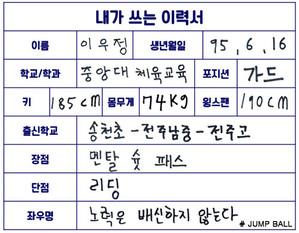 내가 쓰는 이력서
이름 이우정 생년월일 95, 6, 16
학교/학과 중앙대 체육교육 포지션 가드
키 185cm 몸무게 74kg 윙스팬 190cm
출신학교 송천초-전주남중-전주고
장점 멘탈 슛 패스
단점 리딩
좌우명 노력은 배신하지 않는다
# JUMP BALL